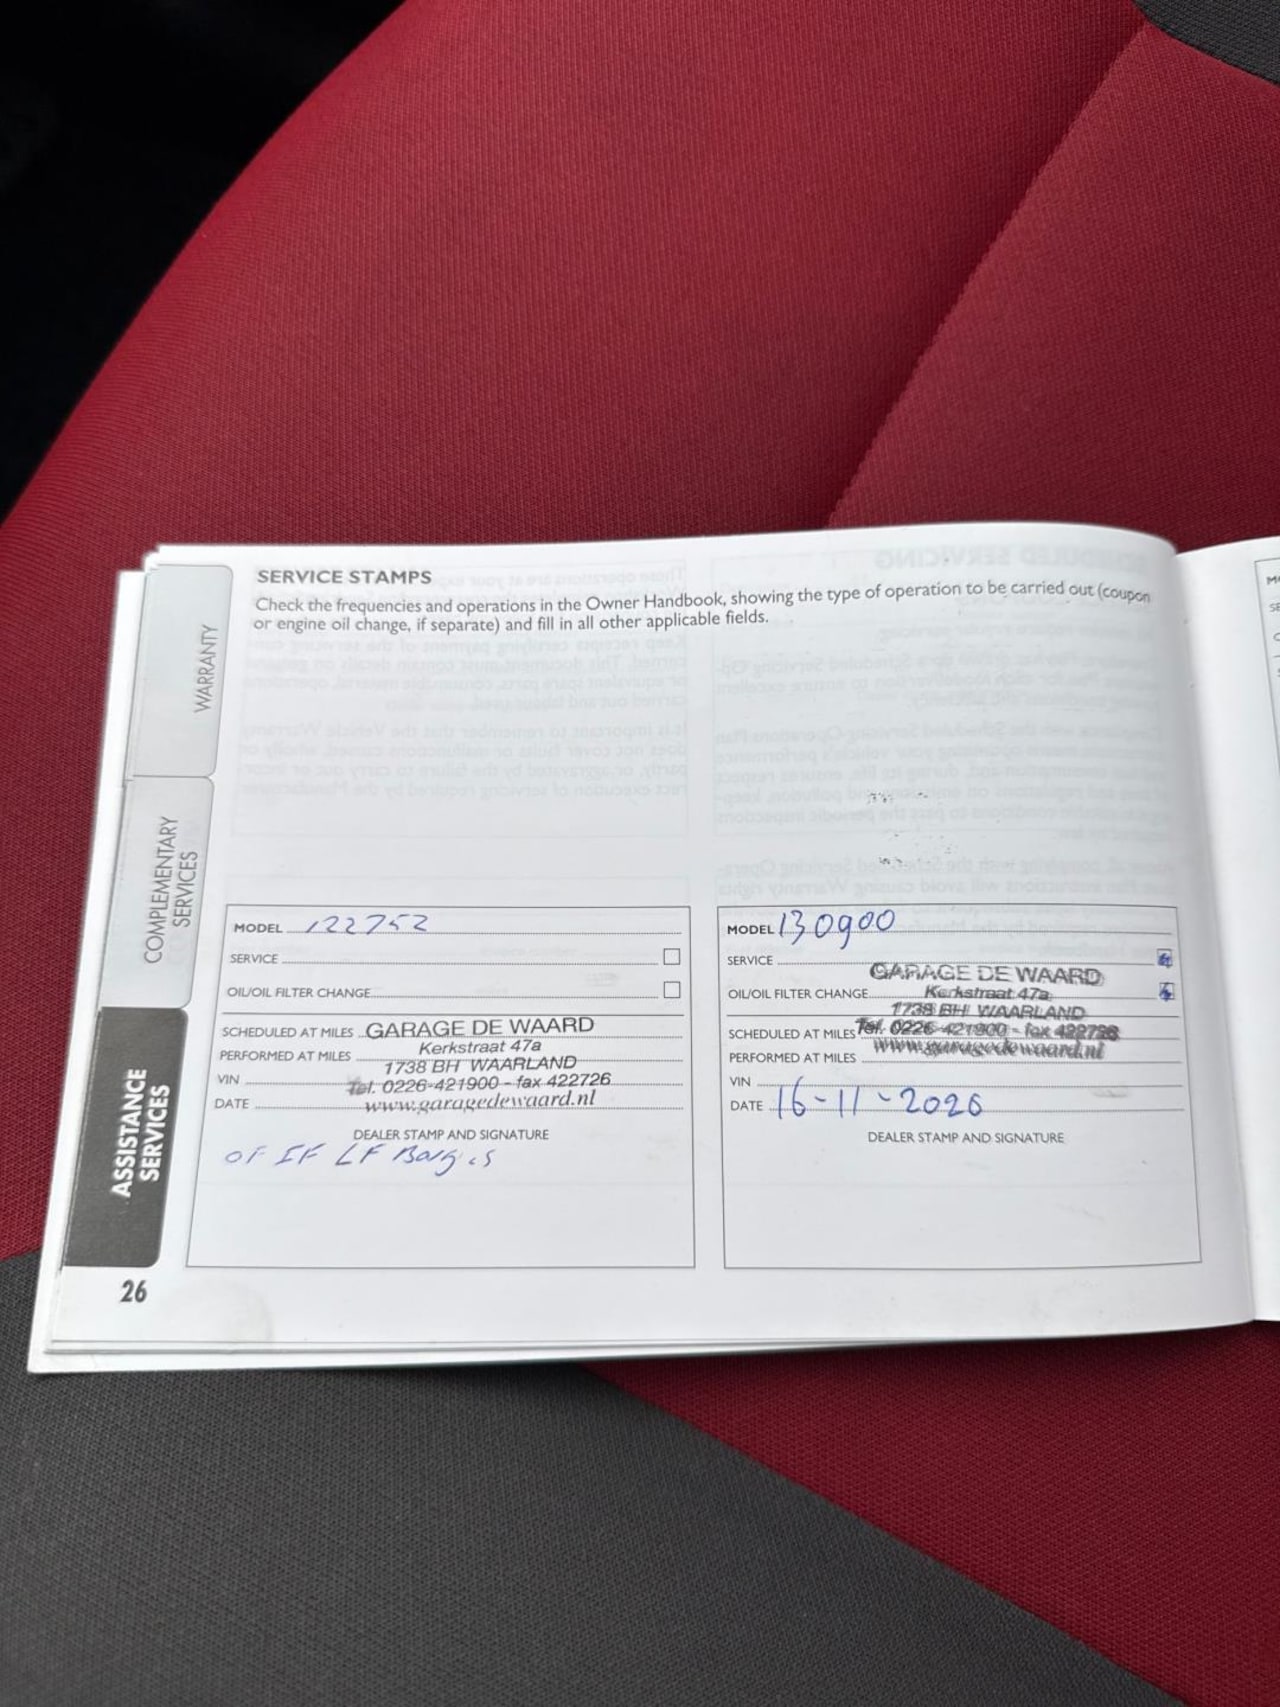 SERVICE STAMPS
Check the frequencies and operations in the Owner Handbook, showing the type of operation to be carried out (coupon
or engine oil change, if separate) and fill in all other applicable fields.
WARRANTY
COMPLEMENTARY
SERVICES
ASSISTANCE
SERVICES
MODEL 122752
SERVICE
OIL/OIL FILTER CHANGE
SCHEDULED AT MILES GARAGE DE WAARD
Kerkstraat 47a
PERFORMED AT MILES
1738 BH WAARLAND
VIN
Tel. 0226-421900 - fax 422726
DATE www.garagedewaard.nl
DEALER STAMP AND SIGNATURE
OF IF LF
MODEL 130900
SERVICE
GARAGE DE WAARD
OIL/OIL FILTER CHANGE Kerkstraat 47a
1738 BH WAARLAND
SCHEDULED AT MILES Tel. 0226-421900 - fax 422726
www.garagedewaard.nl
PERFORMED AT MILES
VIN
DATE 16-11-2020
DEALER STAMP AND SIGNATURE
26